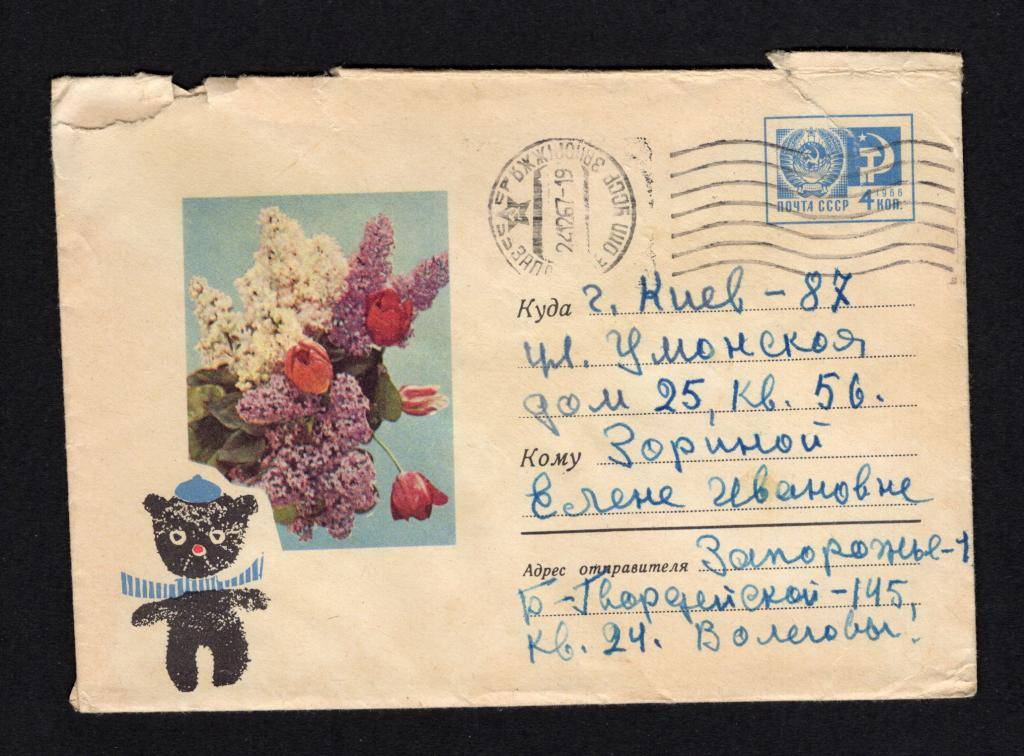 ПОЧТА СССР
1966
4 КОП.
24 12 67-19
Куда г. Киев - 87
ул. Уманской
дом 25, кв. 56.
Кому Зориной
Елене Ивановне
Адрес отправителя Запорожье-1
Б-Гвардейской-145,
кв. 24.